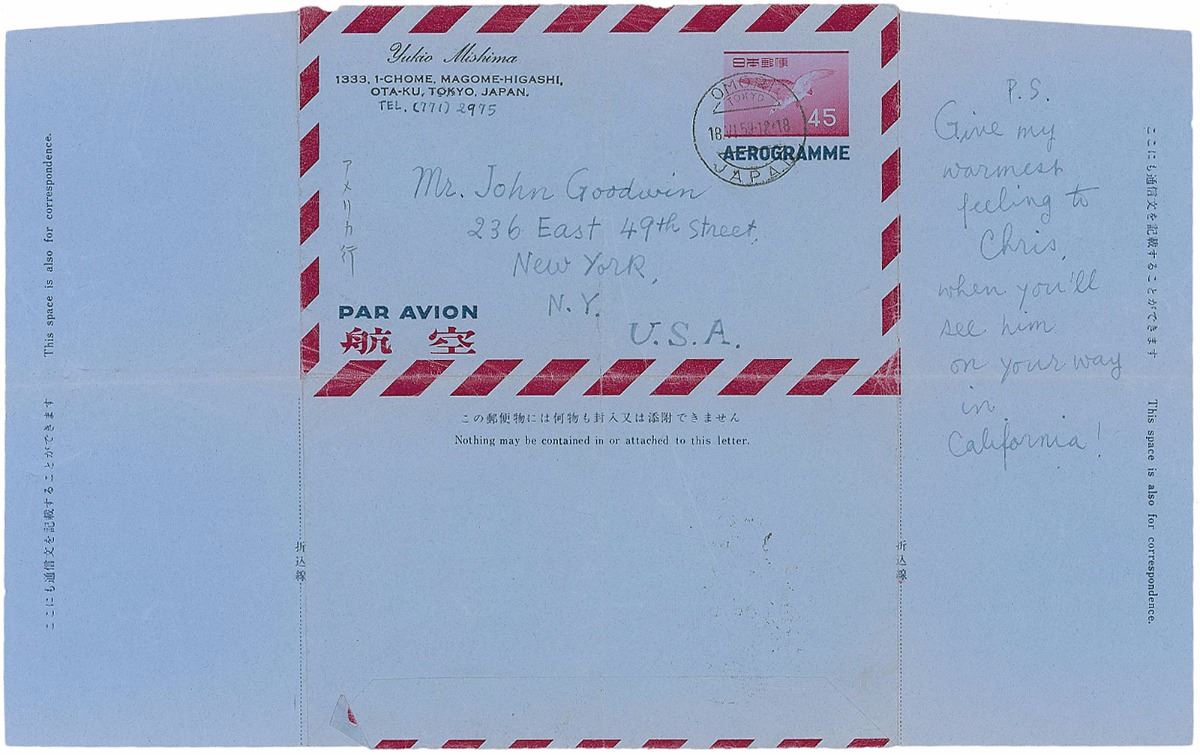 Yukio Mishima
1333, 1-CHOME, MAGOME-HIGASHI,
OTA-KU, TOKYO, JAPAN.
TEL. (771) 2975
日本郵便
45
AEROGRAMME
OMORI
TOKYO
18.VI.59.12-18
JAPAN
アメリカ行
Mr. John Goodwin
236 East 49th Street,
New York,
N.Y.
U.S.A.
PAR AVION
航空
この郵便物には何物も封入又は添附できません
Nothing may be contained in or attached to this letter.
折込線
折込線
ここにも通信文を記載することができます This space is also for correspondence.
P.S.
Give my
warmest
feeling to
Chris,
when you'll
see him
on your way
in
California!
ここにも通信文を記載することができます This space is also for correspondence.